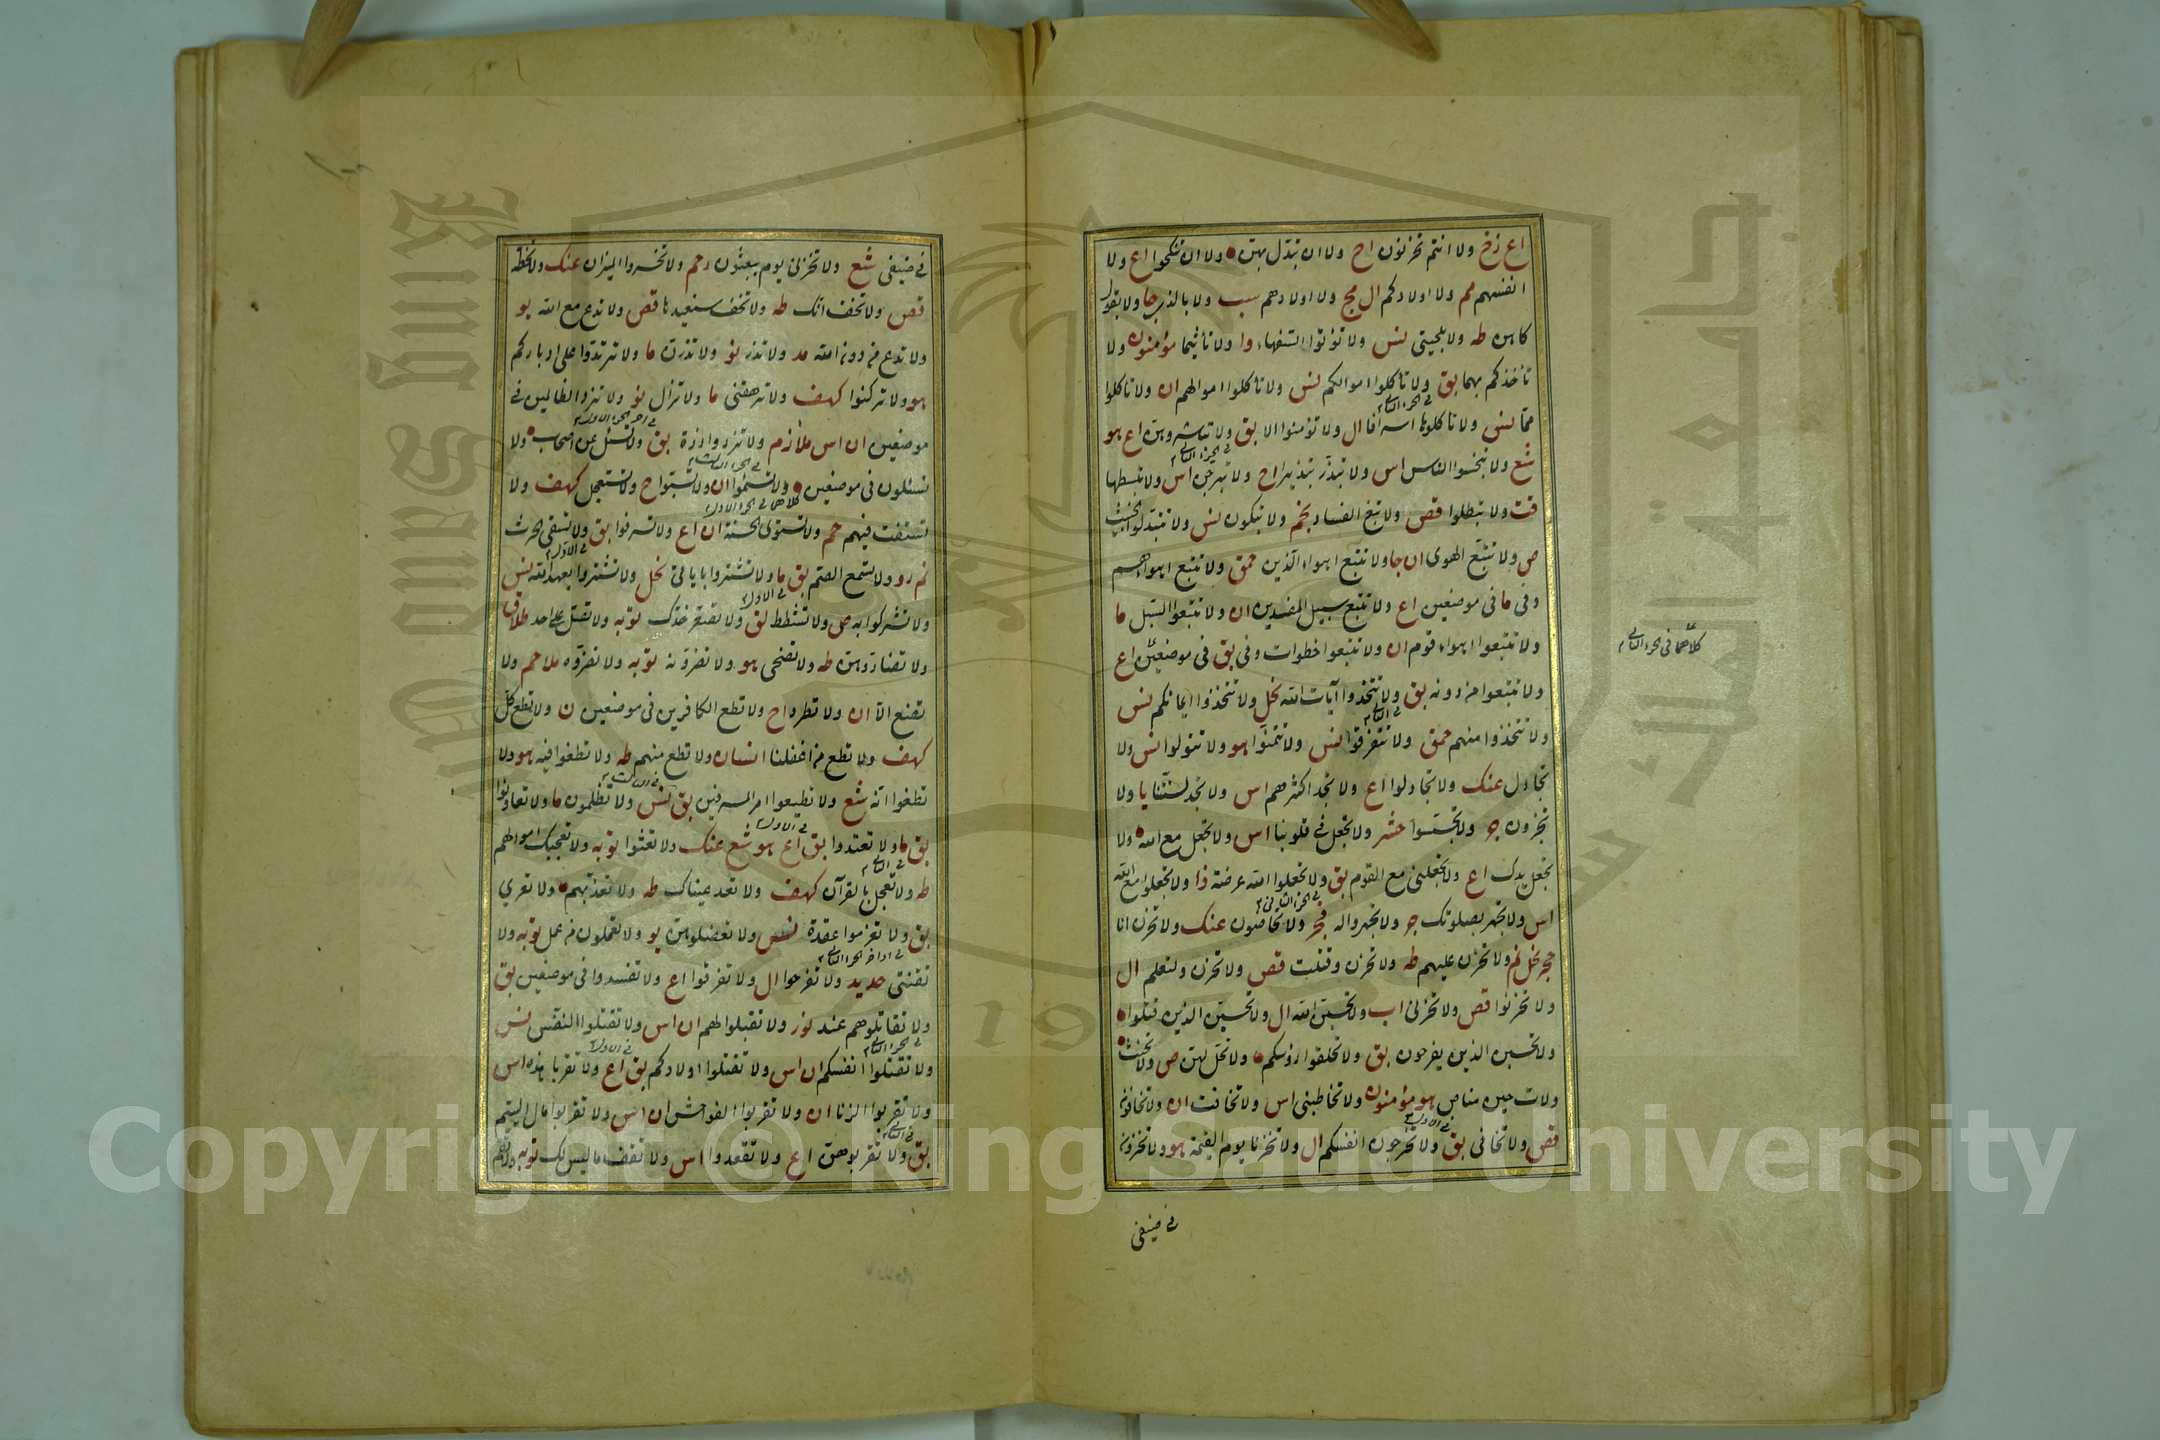 اع زخ ولا انتم تحزنون اح ولا ان تبدل بهن ولا ان تنكحوا اع ولا
انفسهم مم ولا اولادكم ال مج ولا اولادهم سب ولا بالذي جا ولا بقول
كاهن طه ولا بلحيتي نس ولا تؤتوا السفهاء وا ولا تأثيما مؤمنون ولا
تأخذكم بهما بق ولا تأكلوا اموالكم نس ولا تأكلوا اموالهم ان ولا تأكلوا
مما نس ولا تأكلوها اسرافا ال ولا تؤمنوا الا بق ولا تباشروهن اع هو
شع ولا تبخسوا الناس اس ولا تبذر تبذيرا اح ولا تبرجن اس ولا تبسطها
قت ولا تبطلوا قص ولا تبغ الفساد نجم ولا تبكون نس ولا تتبدلوا الخبيث
ص ولا تتبع الهوى ان جا ولا تتبع اهواء الذين حمق ولا تتبع اهواءهم
وفي ما في موضعين اع ولا تتبع سبيل المفسدين ان ولا تتبعوا السبل ما
ولا تتبعوا اهواء قوم ان ولا تتبعوا خطوات وفي بق في موضعين اع
ولا تتبعوا من دونه بق ولا تتخذوا آيات الله نحل ولا تتخذوا ايمانكم نس
ولا تتخذوا منهم حمق ولا تتفرقوا نس ولا تتمنوا هو ولا تتولوا نس ولا
تجادل عنك ولا تجادلوا اع ولا تجد اكثرهم اس ولا تجد لسنتنا يا ولا
تجزون ولا تجسسوا حشر ولا تجعل في قلوبنا اس ولا تجعل مع الله ولا
تجعل يدك اع ولا تجعلني مع القوم بق ولا تجعلوا الله عرضة ذا ولا تجعلوا مع الله
اس ولا تجهر بصلوتك ولا تجهروا له فجر ولا تحاضون عنك ولا تحزن انا
حجر نحل نم ولا تحزن عليهم طه ولا تحزن وقتلت قص ولا تحزن ولتعلم ال
ولا تحزنوا قص ولا تحزني اب ولا تحسبن الله ال ولا تحسبن الذين قتلوا
ولا تحسبن الذين يفرحون بق ولا تحلقوا رؤسكم ولا تحل لهن ص ولا تحنث
ولات حين مناص هو مؤمنون ولا تخاطبني اس ولا تخافت ان ولا تخافون
قص ولا تخافي بق ولا تخرجون انفسكم ال ولا تخزنا يوم القيمة هو ولا تخزون
في ضيفي
كلاهما في الجزء الثاني
في ضيفي شع ولا تخزني يوم يبعثون رحم ولا تخسروا الميزان عنك ولا تخطه
قص ولا تخف انك طه ولا تخف سنعيدها قص ولا تدع مع الله يو
ولا تدع من دون الله مد ولا تذر نو ولا تذرن ما ولا ترتدوا على ادباركم
هو ولا تركنوا كهف ولا ترهقني ما ولا تزال نو ولا تزد الظالمين في
موضعين ان اس ملا زم ولا تزر وازرة بق ولا تسئل عن اصحاب ولا
تسئلون في موضعين ولا تسئموا ان ولا تسبوا ح ولا تستعجل كهف ولا
تستفت فيهم حم ولا تستوى الحسنة ان اع ولا تسرفوا بق ولا تسقي الحرث
نم رو ولا تسمع الصم بق ما ولا تشتروا باياتي نحل ولا تشتروا بعهد الله نس
ولا تشركوا به ص ولا تشطط لق ولا تصعر خدك توبه ولا تصل على احد طلاق
ولا تضاروهن طه ولا تضحى هو ولا تضرونه توبه ولا تضروه ملا حم ولا
تضع الا ان ولا تطرد اح ولا تطع الكافرين في موضعين ن ولا تطع كل
كهف ولا تطع من اغفلنا انسان ولا تطع منهم طه ولا تطغوا فيه هو ولا
تطغوا انه شع ولا تطيعوا امر المسرفين بق نس ولا تظلمون ما ولا تعاونوا
بق ما ولا تعتدوا بق اع هو شع عنك ولا تعثوا توبه ولا تعجبك اموالهم
طه ولا تعجل بالقرآن كهف ولا تعد عيناك طه ولا تعذبهم ولا تعري
بق ولا تعزموا عقدة نس ولا تعضلوهن يو ولا تعملون من عمل توبه ولا
تفتني حديد ولا تفرحوا ال ولا تفرقوا اع ولا تفسدوا في موضعين بق
ولا تقاتلوهم عند نور ولا تقبلوا لهم ان اس ولا تقتلوا النفس نس
ولا تقتلوا انفسكم ان اس ولا تقتلوا اولادكم بق اع ولا تقربا هذه اس
ولا تقربوا الزنا ان ولا تقربوا الفواحش ان اس ولا تقربوا مال اليتيم
بق ولا تقربوهن اع ولا تقعدوا اس ولا تقف ما ليس لك توبه
Copyright © King Saud University
King Saud University
جامعة الملك سعود